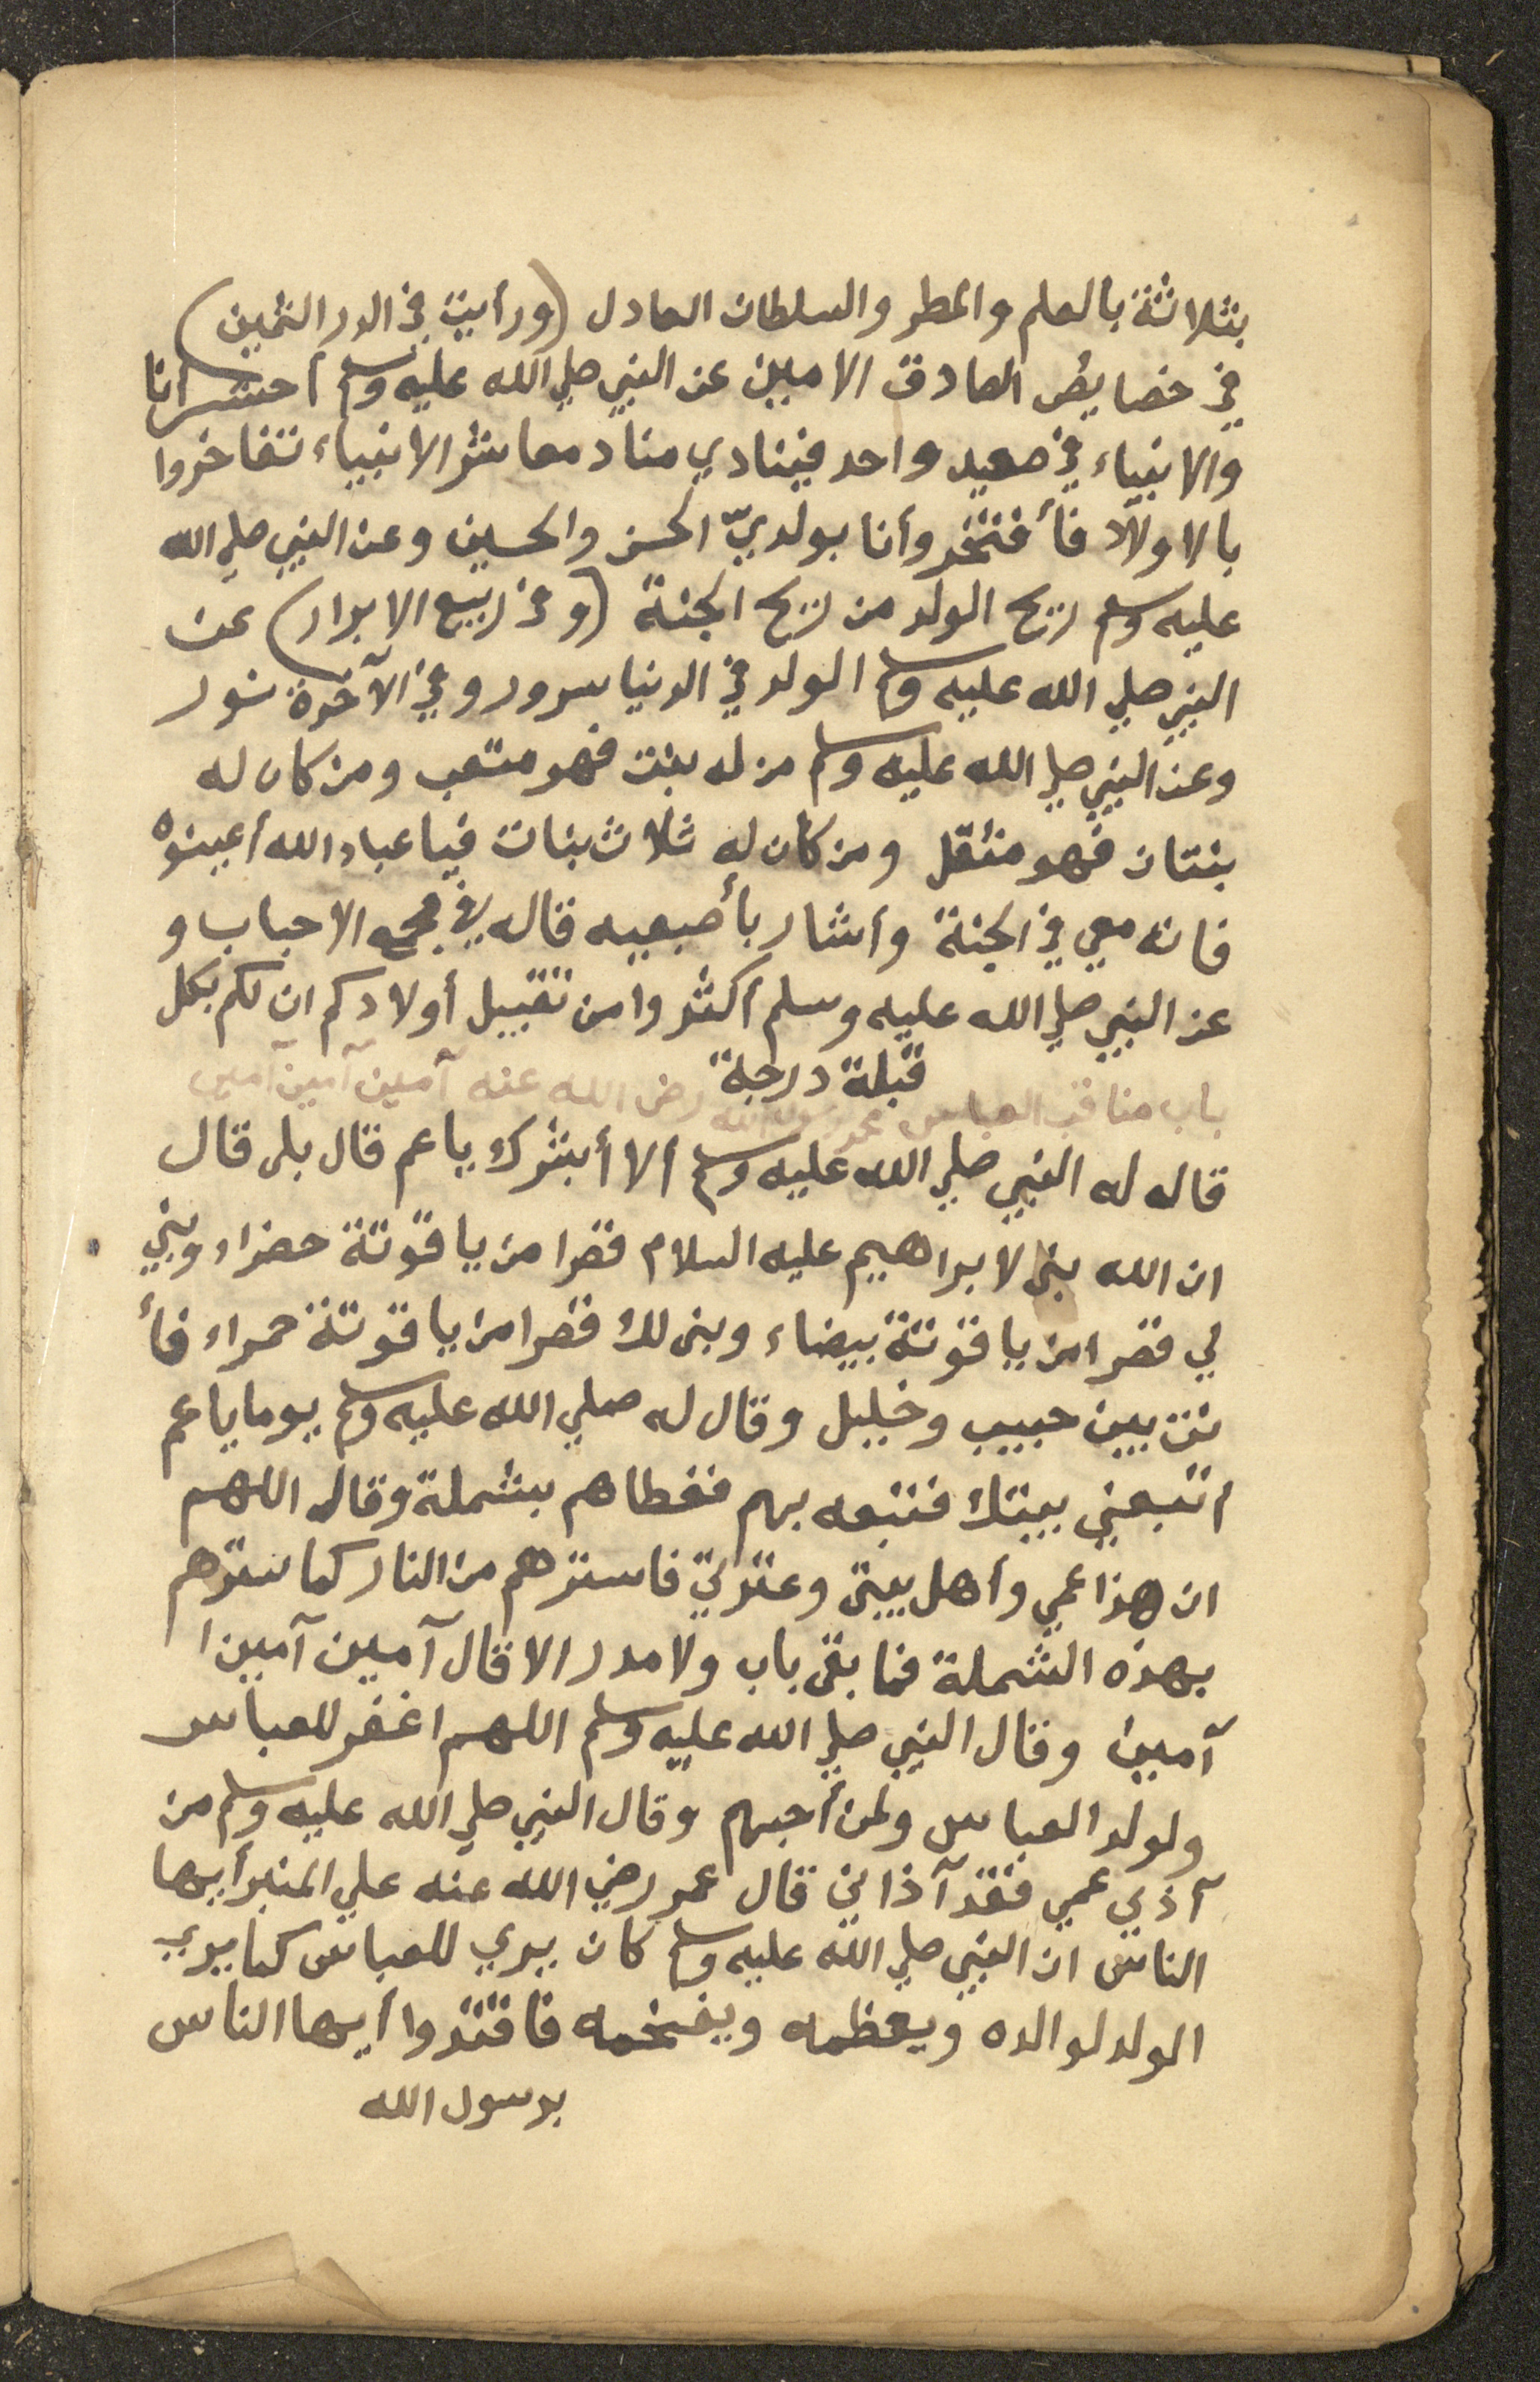 بثلاثة بالعلم والمطر والسلطان العادل (ورأيت في الدر الثمين)
في خصايص الصادق الامين عن النبي صلي الله عليه وسلم احشر انا
والانبياء في صعيد واحد فينادي مناد معاشر الانبياء تفاخروا
بالاولاد فأفتخر وأنا بولديّ الحسن والحسين وعن النبي صلي الله
عليه وسلم ريح الولد من ريح الجنة (وفي ربيع الابرار) عن
النبي صلي الله عليه وسلم الولد في الدنيا سرور وفي الآخرة نور
وعن النبي صلي الله عليه وسلم من له بنت فهو متعب ومن كان له
بنتان فهو مثقل ومن كان له ثلاث بنات فيا عباد الله أعينوه
فانه معي في الجنة وأشار بأصبعيه قاله في مجمع الاحباب و
عن النبي صلي الله عليه وسلم أكثروا من تقبيل أولادكم ان لكم بكل
قبلة درجة
باب مناقب العباس عم رسول الله رضى الله عنه آمين آمين آمين
قال له النبي صلي الله عليه وسلم ألا أبشرك يا عم قال بلى قال
ان الله بنى لابراهيم عليه السلام قصرا من ياقوتة خضراء وبني
لي قصرا من ياقوتة بيضاء وبنى لك قصرا من ياقوتة حمراء فأ
نت بين حبيب وخليل وقال له صلي الله عليه وسلم يوما يا عم
اتبعني ببيتك فتبعه بهم فغطاهم بشملة وقال اللهم
ان هذا عمي وأهل بيتى وعترتي فاسترهم من النار كما سترهم
بهذه الشملة فما بقى باب ولا مدر الا قال آمين آمين ا
آمين وقال النبي صلي الله عليه وسلم اللهم اغفر للعباس
ولولد العباس ولمن أحبهم وقال النبي صلي الله عليه وسلم من
آذي عمي فقد آذاني قال عمر رضي الله عنه علي المنبر أيها
الناس ان النبي صلي الله عليه وسلم كان يري للعباس كما يري
الولد لوالده ويعظمه ويفخمه فاقتدوا أيها الناس
برسول الله